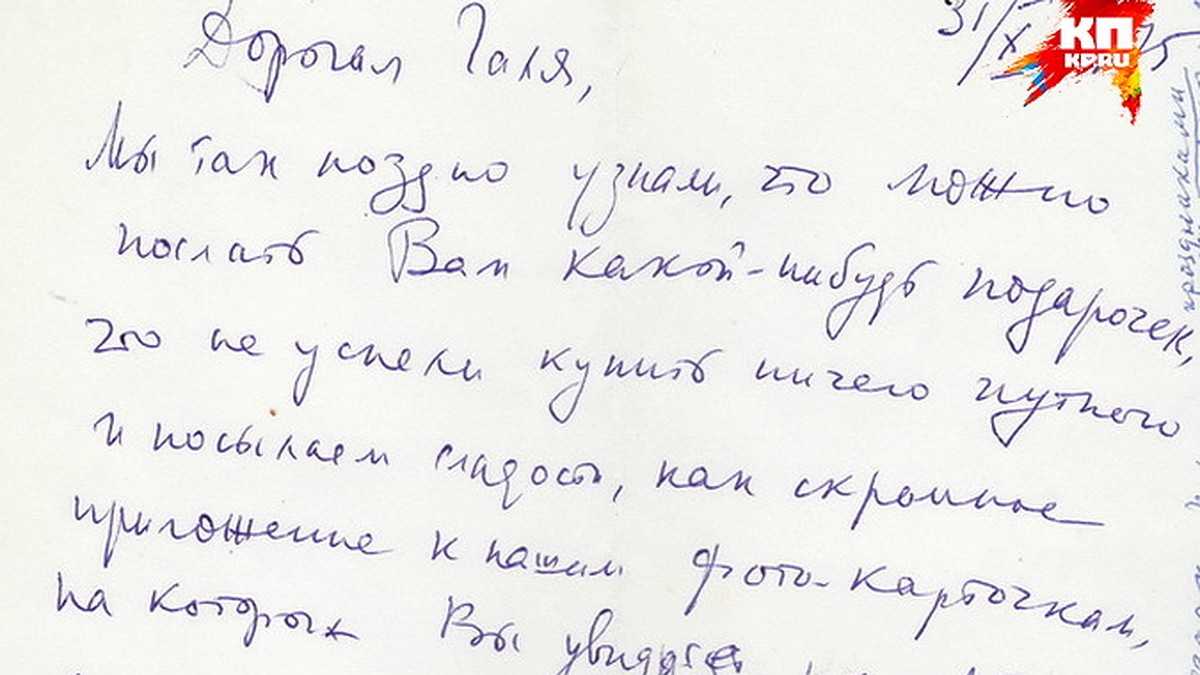 31/X 75
КП
KP.RU
Дорогая Галя,
Мы так поздно узнали, что можно
послать Вам какой-нибудь подарочек,
что не успели купить ничего путного
и посылаем сладость, как скромное
приложение к нашим фото-карточкам,
на которых Вы увидите
праздниками